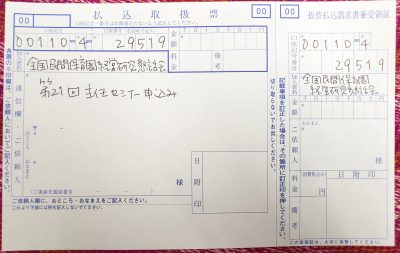 00
払込取扱票
00
振替払込請求書兼受領証
00110-4
29519
金額
千百十万千百十円
料金
備考
全国民間保育園経営研究懇話会
第21回 主任セミナー申込み
通信欄・ご依頼人
様
日附印
ご依頼人欄に、おところ・おなまえをご記入ください。
これより下部には何も記入しないでください。
各票の※印欄は、ご依頼人においてご記入ください。
切り取らないでお出しください。
記載事項を訂正した場合は、その箇所に訂正印を押してください。
00110-4
29519
全国民間保育園
経営研究懇話会
金額
ご依頼人
おなまえ
様
料金
日附印
円
備考
この受領証は、大切に保管してください。